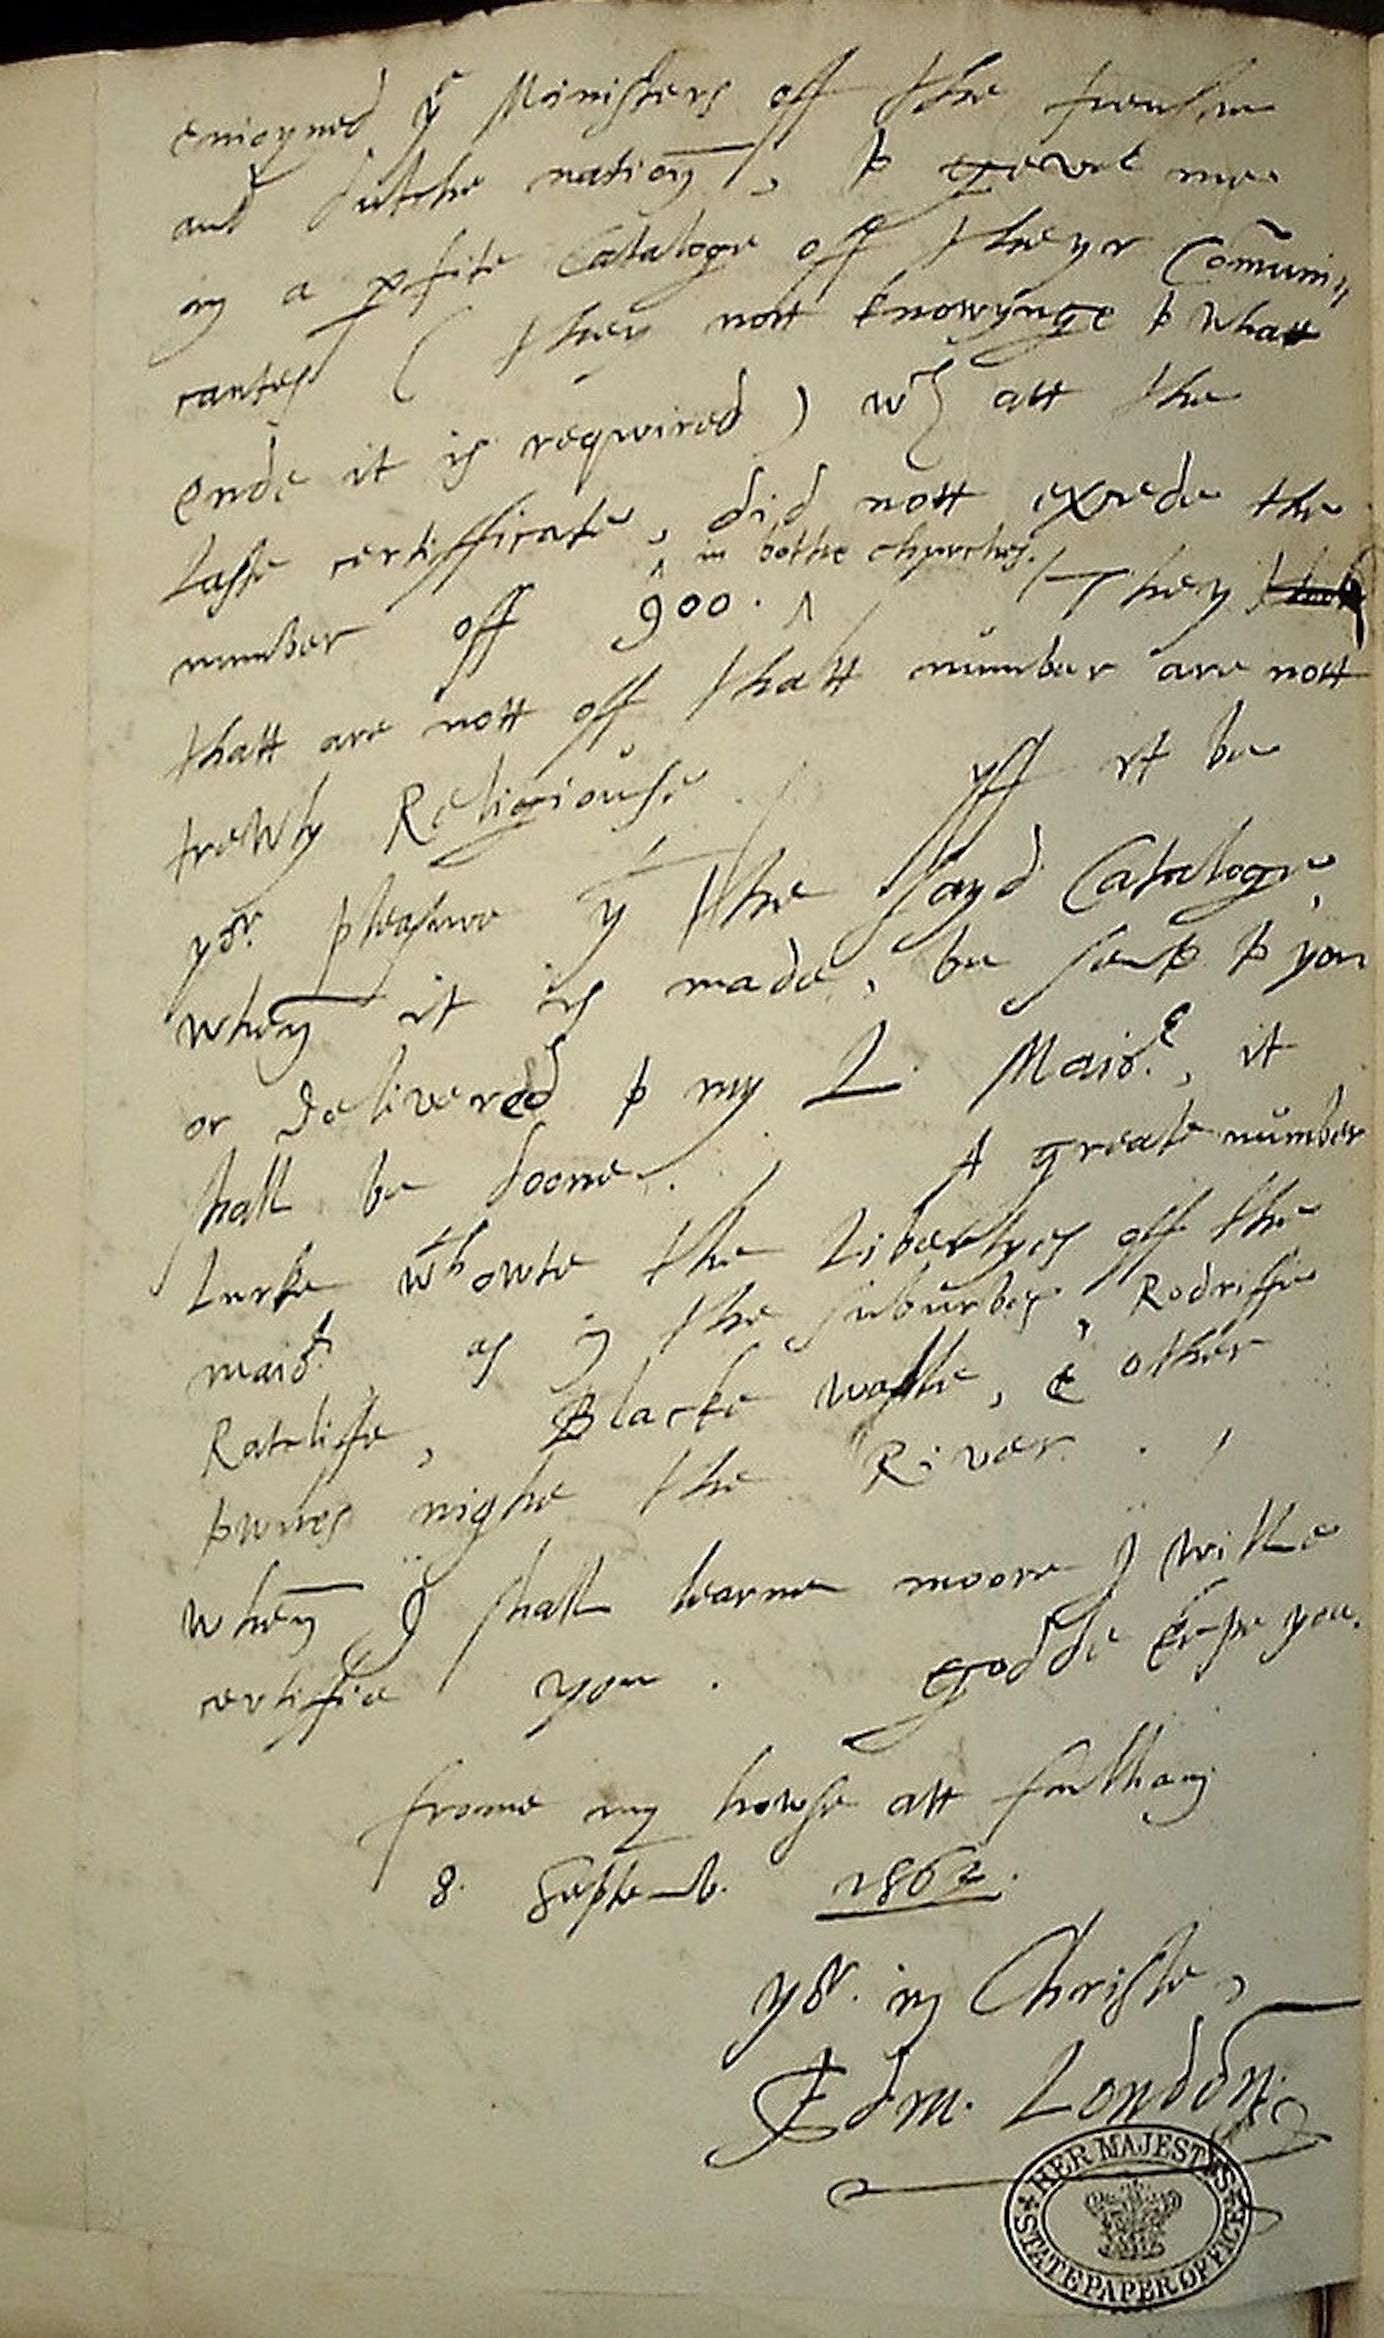 enioyned yͤ Ministers off the frenshe
and dutche nation, to geve me
in a ꝑfite Cataloge off theyr Com̃uni〃
cantes ( they nott knowynge to whatt
ende it is reqwired ) wᶜʰ att the
laste certifficate, did nott excede the
number off 900. ^ in bothe churches. They
thatt are nott off thatt number are nott
trewly Religiouse. yff itt be
yoʳ pleasure yᵗ the sayd Cataloge,
when it is made, be sent to you
or delivered to my L. Maioʳ, it
shall be doone. A greate number
lurke wᵗʰowte the Libertyes off the
maioʳ as in the suburbes, Rodriffe
Ratcliffe, Blacke walle, & other
townes nighe the River.
when I shall learne moore I wille
certiffie you. godde kepe you.
frome my howse att fulham
8. Septemb. 1562.
yoʳ in Christe,
Edm. London.
HER MAJESTY'S
STATE PAPER OFFICE